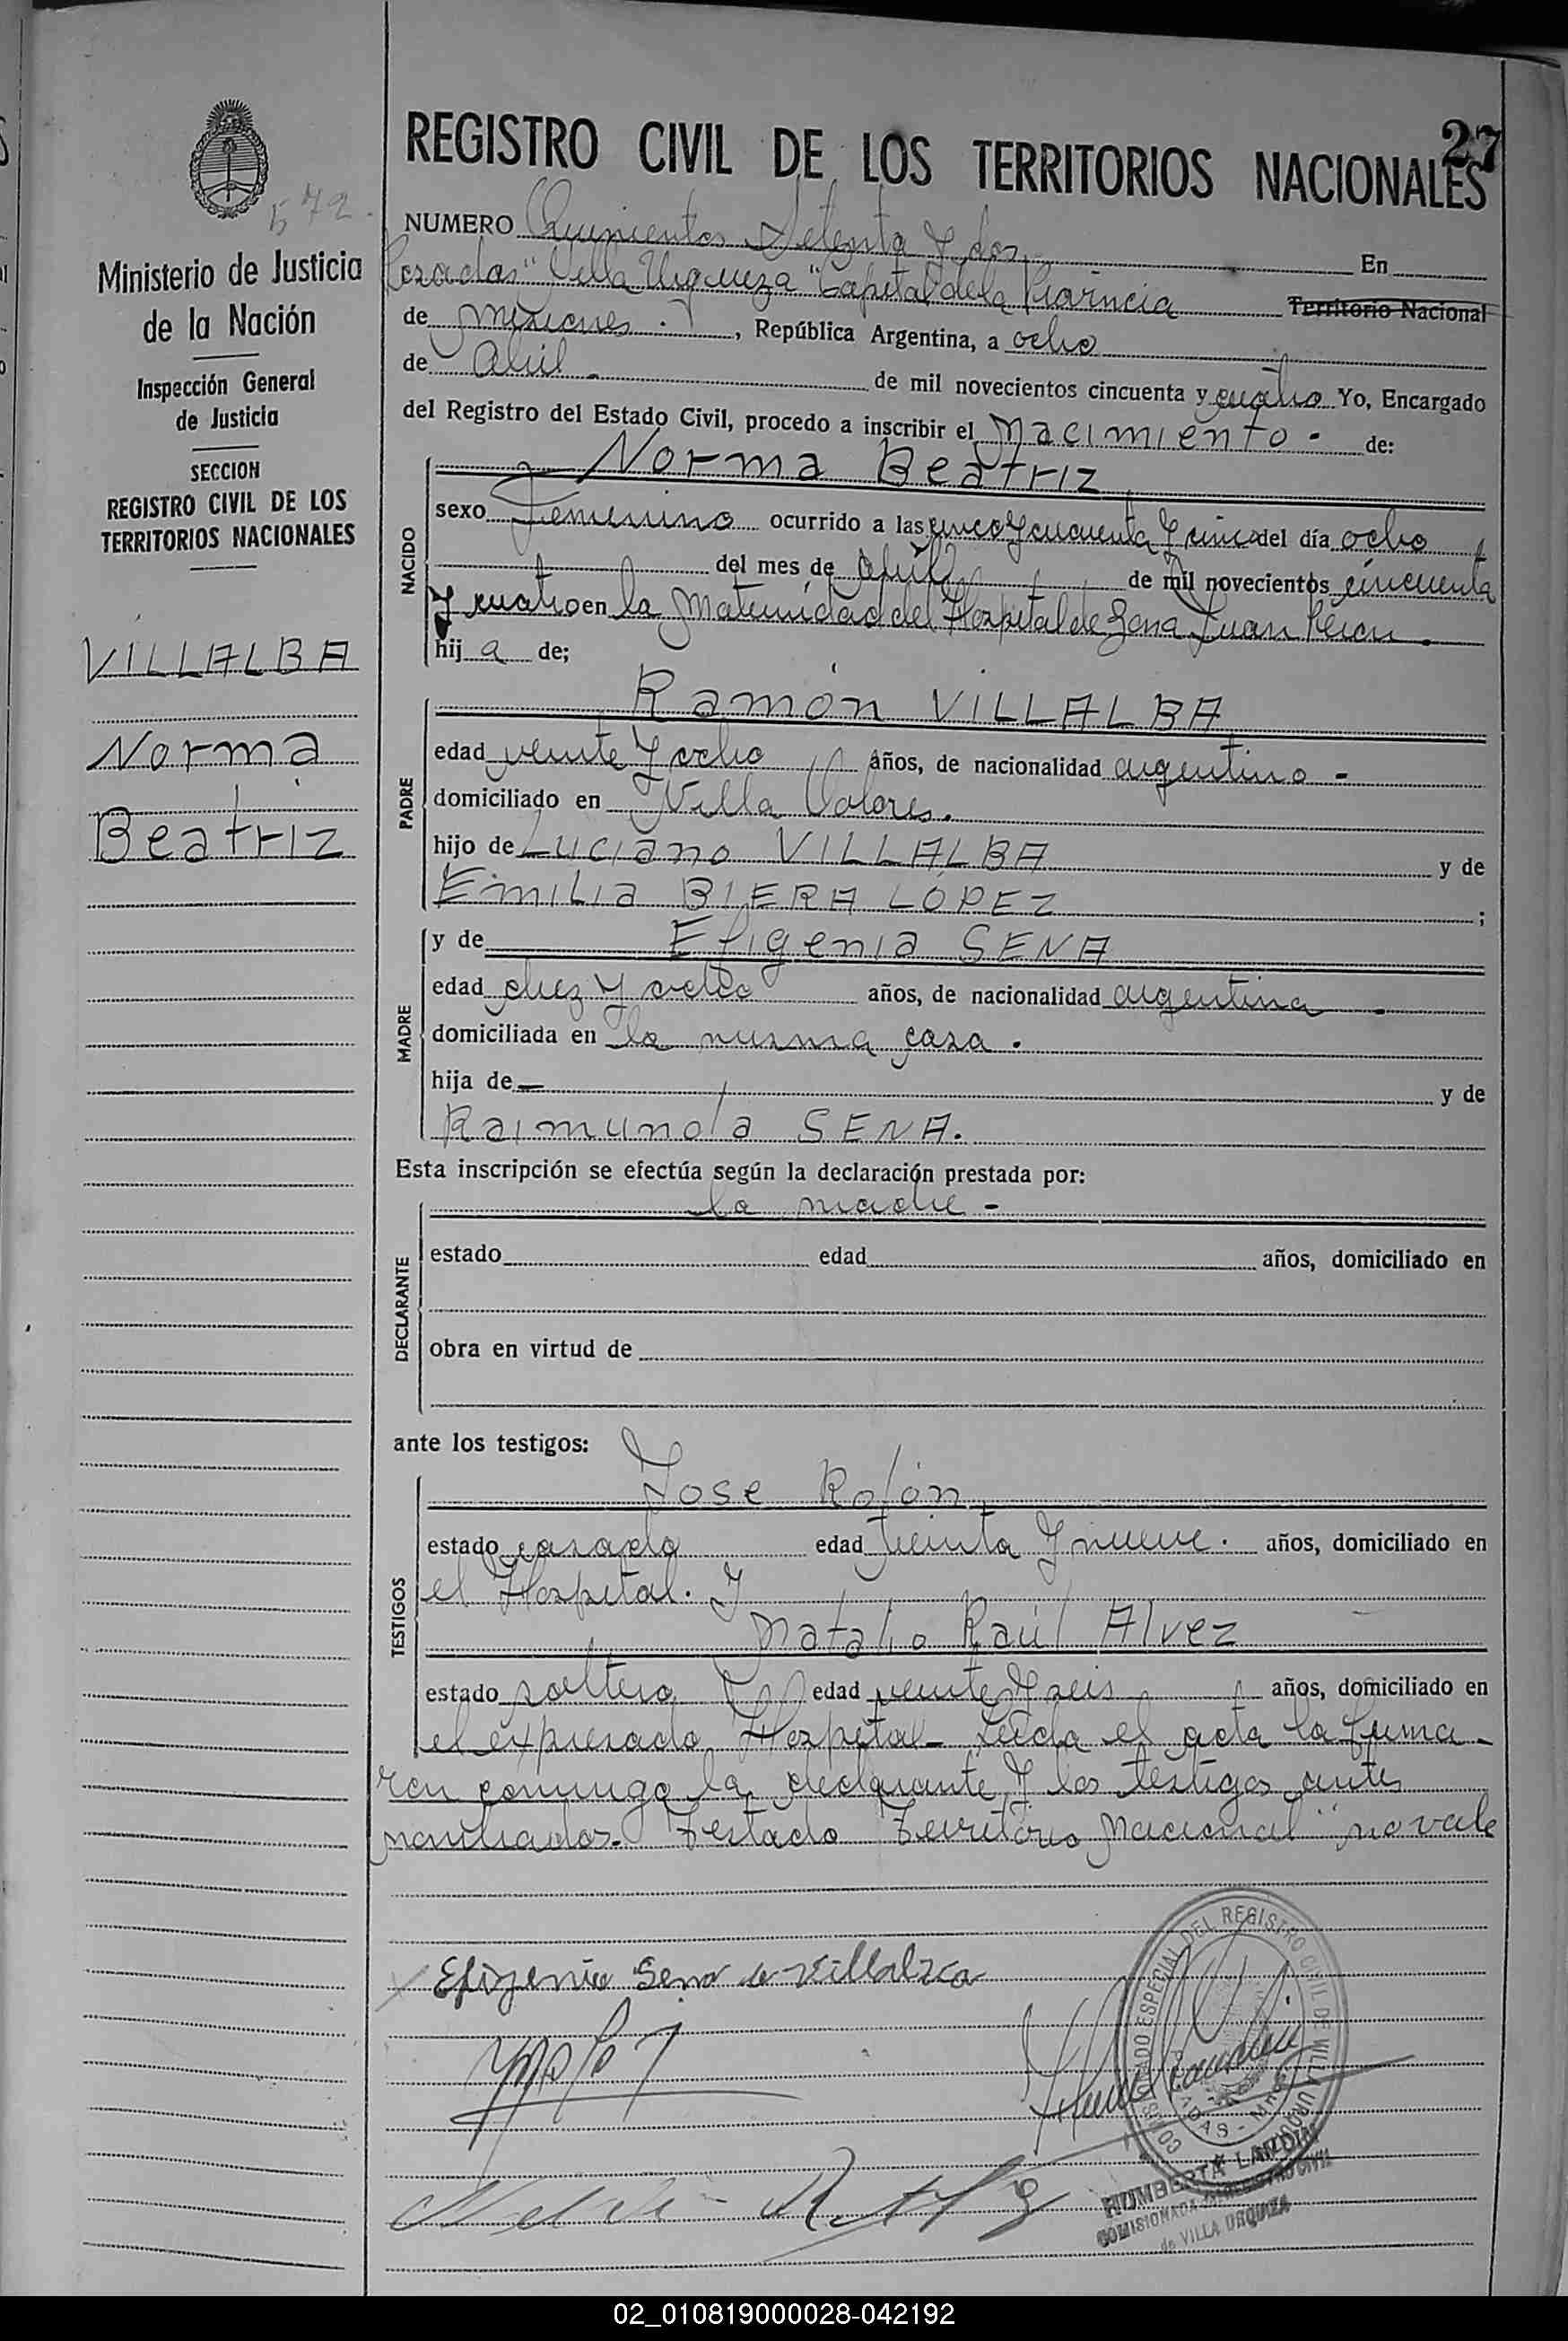 27
REGISTRO CIVIL DE LOS TERRITORIOS NACIONALES
572.
Ministerio de Justicia
de la Nación
Inspección General
de Justicia
SECCION
REGISTRO CIVIL DE LOS
TERRITORIOS NACIONALES
VILLALBA
Norma
Beatriz
NUMERO Quinientos Setenta y dos En
Posadas "Villa Urquiza" Capital de la Provincia Territorio Nacional
de Misiones. , República Argentina, a ocho
de Abril de mil novecientos cincuenta y cuatro Yo, Encargado
del Registro del Estado Civil, procedo a inscribir el Nacimiento - de:
NACIDO
Norma Beatriz
sexo Femenino ocurrido a las cinco y cuarenta y cinco del día ocho
del mes de Abril de mil novecientos cincuenta
y cuatro en la Maternidad del Hospital de Zona Juan Perón.
hij a de;
PADRE
Ramón VILLALBA
edad veinte y ocho años, de nacionalidad argentino -
domiciliado en Villa Dolores.
hijo de Luciano VILLALBA y de
Emilia BIERA LÓPEZ ;
MADRE
y de Efigenia SENA
edad diez y ocho años, de nacionalidad argentina -
domiciliada en la misma casa.
hija de — y de
Raimunda SENA.
Esta inscripción se efectúa según la declaración prestada por:
DECLARANTE
la madre -
estado edad años, domiciliado en
obra en virtud de
ante los testigos:
TESTIGOS
Jose Rolón
estado casado edad treinta y nueve. años, domiciliado en
el Hospital. y
Natalio Raúl Alvez
estado soltero edad veinte y seis años, domiciliado en
el expresado Hospital - Leída el acta la firma-
ron conmigo la declarante y los testigos antes
nombrados. - Testado "Territorio Nacional" no vale
Efigenia Sena de Villalba
COMISIONADO ESPECIAL DEL REGISTRO CIVIL DE VILLA URQUIZA
POSADAS - MNES
HUMBERTA LANDIN
COMISIONADA REGISTRO CIVIL
de VILLA URQUIZA
02_010819000028-042192